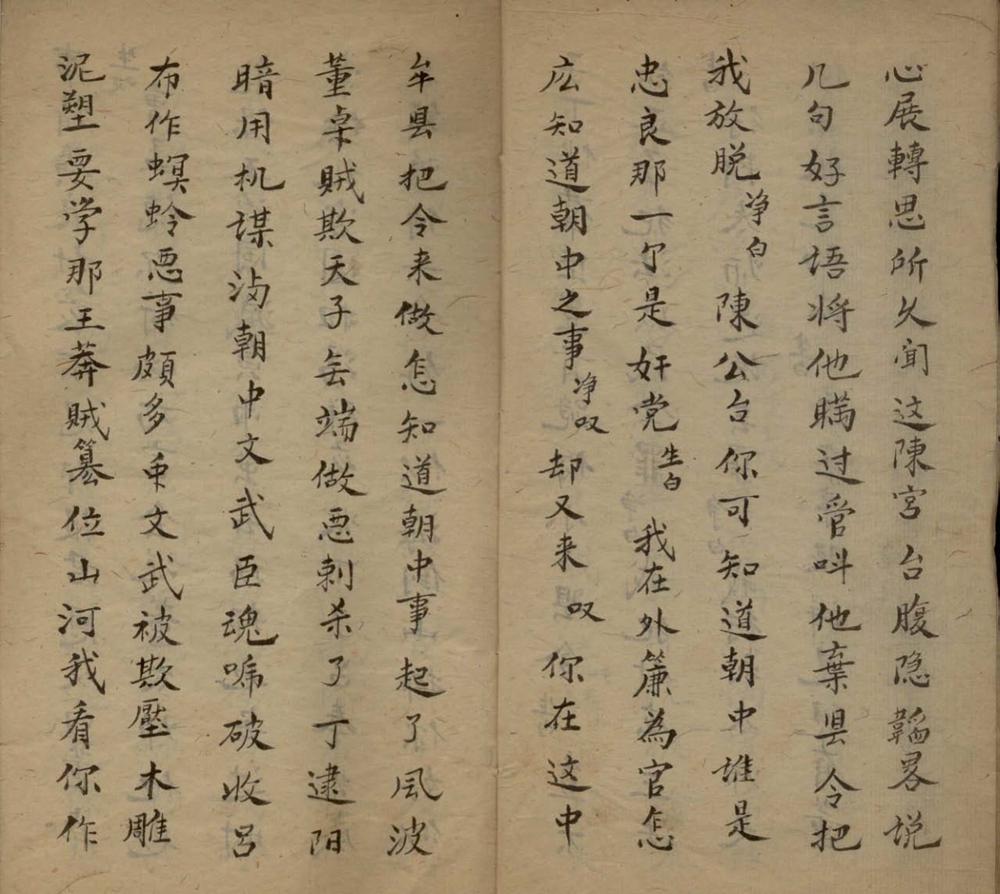 心展轉思所久闻这陳宮台腹隐韜畧说
几句好言语将他瞒过管呌他棄县令把
我放脱净白陳公台你可知道朝中谁是
忠良那一个是奸党生白我在外簾為官怎
広知道朝中之事净叹却又来叹你在这中
牟县把令来做怎知道朝中事起了风波
董卓贼欺天子无端做恶刺杀了丁建阳
暗用机谋沟朝中文武臣魂唬破收吕
布作螟蛉恶事颇多牵文武被欺壓木雕
泥塑要学那王莽贼篡位山河我看你作